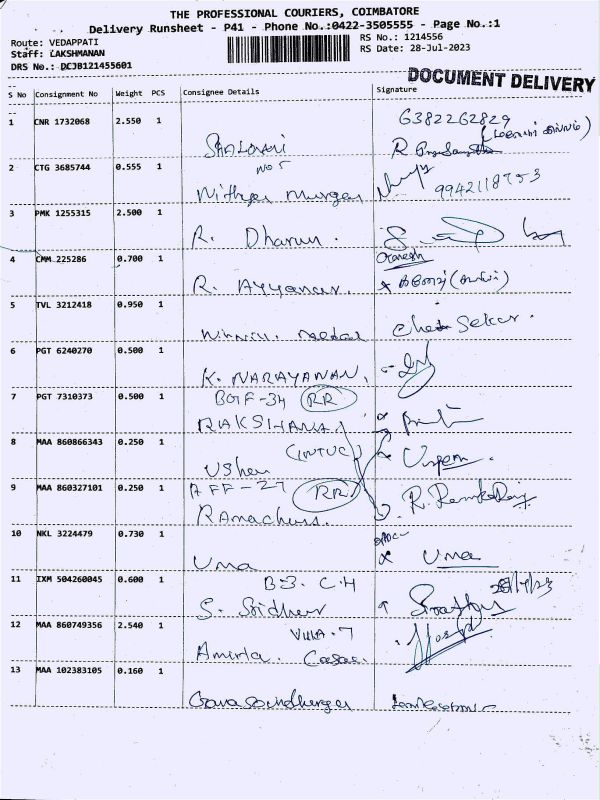 THE PROFESSIONAL COURIERS, COIMBATORE
Delivery Runsheet - P41 - Phone No.:0422-3505555 - Page No.:1
Route: VEDAPPATI
RS No.: 1214556
Staff: LAKSHMANAN
RS Date: 28-Jul-2023
DRS No.: DCJB121455601
DOCUMENT DELIVERY
S No Consignment No Weight PCS Consignee Details Signature
6382262829
1 CNR 1732068 2.550 1
R
2 CTG 3685744 0.555 1
No 5
Nithya Murgan 9942118753
3 PMK 1255315 2.500 1
R. Dharun.
4 CMM 225286 0.700 1
Ganesh
R. Ayyanar.
5 TVL 3212418 0.950 1
Sekar.
6 PGT 6240270 0.500 1
K. NARAYANAN,
7 PGT 7310373 0.500 1
BGF-34 RR
RAKSHANA
8 MAA 860866343 0.250 1
(INTUC)
9 MAA 860327101 0.250 1
AFF-27 RR
R.
10 NKL 3224479 0.730 1
Uma Uma
11 IXM 504260045 0.600 1
B3. C.H 28/7/23
S. Sridhar
12 MAA 860749356 2.540 1
VILLA.7
Amirta.
13 MAA 102383105 0.160 1